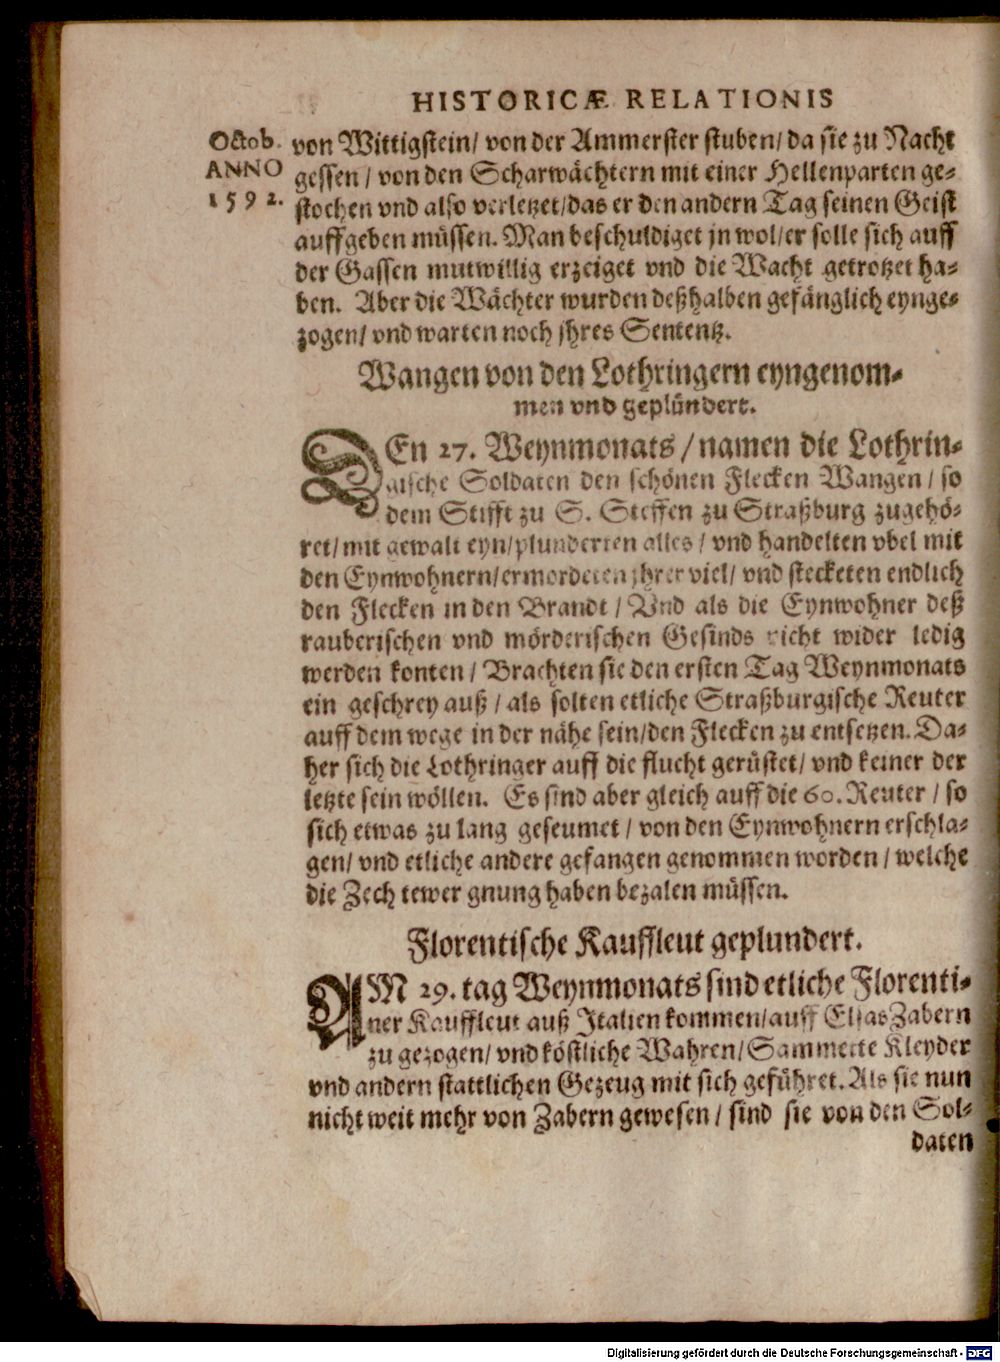 HISTORICÆ RELATIONIS
Octob.
ANNO
1592.
von Wittigstein/ von der Ammerster stuben/ da sie zu Nacht
gessen / von den Scharwächtern mit einer Hellenparten ge-
stochen vnd also verletzet/das er den andern Tag seinen Geist
auffgeben müssen. Man beschuldiget jn wol/er solle sich auff
der Gassen mutwillig erzeiget vnd die Wacht getrotzet ha-
ben. Aber die Wächter wurden deßhalben gefänglich eynge-
zogen/ vnd warten noch jhres Sententz.
Wangen von den Lothringern eyngenom-
men vnd geplündert.
DEn 27. Weynmonats / namen die Lothrin-
gische Soldaten den schönen Flecken Wangen / so
dem Stifft zu S. Steffen zu Straßburg zugehö-
ret/ mit gewalt eyn/plunderten alles / vnd handelten vbel mit
den Eynwohnern/ermordeten jhrer viel/ vnd stecketen endlich
den Flecken in den Brandt / Vnd als die Eynwohner deß
rauberischen vnd mörderischen Gesinds nicht wider ledig
werden konten / Brachten sie den ersten Tag Weynmonats
ein geschrey auß / als solten etliche Straßburgische Reuter
auff dem wege in der nähe sein/den Flecken zu entsetzen. Da-
her sich die Lothringer auff die flucht gerüstet/ vnd keiner der
letzte sein wöllen. Es sind aber gleich auff die 60. Reuter / so
sich etwas zu lang geseumet / von den Eynwohnern erschla-
gen/ vnd etliche andere gefangen genommen worden / welche
die Zech tewer gnung haben bezalen müssen.
Florentische Kauffleut geplundert.
AM 29. tag Weynmonats sind etliche Florenti-
ner Kauffleut auß Italien kommen/auff Elsas Zabern
zu gezogen/ vnd köstliche Wahren/ Sammecte Kleyder
vnd andern stattlichen Gezeug mit sich geführet. Als sie nun
nicht weit mehr von Zabern gewesen / sind sie von den Sol-
daten
Digitalisierung gefördert durch die Deutsche Forschungsgemeinschaft - DFG